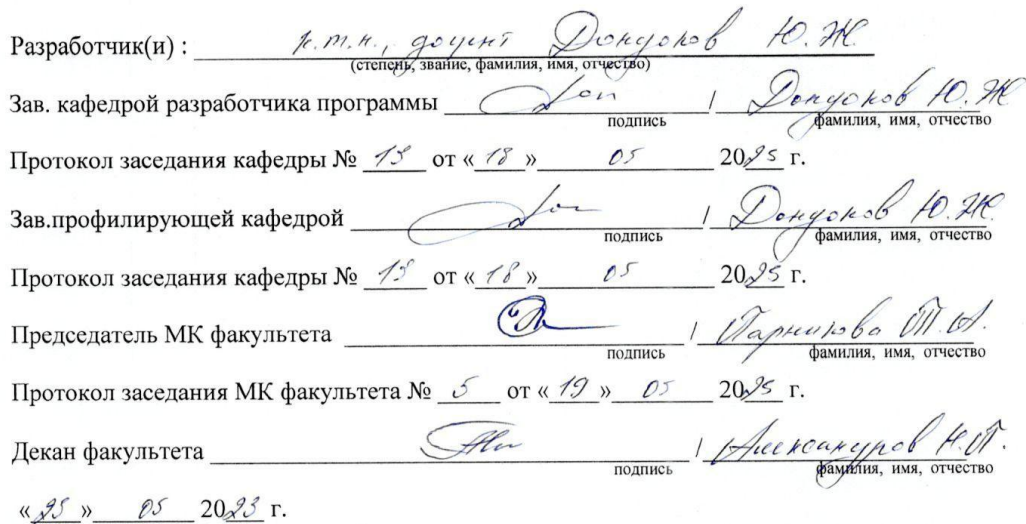 Разработчик(и) : к.т.н., доцент Дондоков Ю.Ж.
(степень, звание, фамилия, имя, отчество)
Зав. кафедрой разработчика программы / Дондоков Ю.Ж
подпись фамилия, имя, отчество
Протокол заседания кафедры № 15 от « 18 » 05 2025 г.
Зав.профилирующей кафедрой / Дондоков Ю.Ж.
подпись фамилия, имя, отчество
Протокол заседания кафедры № 15 от « 18 » 05 2025 г.
Председатель МК факультета / Парникова Т.А.
подпись фамилия, имя, отчество
Протокол заседания МК факультета № 5 от « 19 » 05 2025 г.
Декан факультета / Александров Н.П.
подпись фамилия, имя, отчество
« 25 » 05 2023 г.